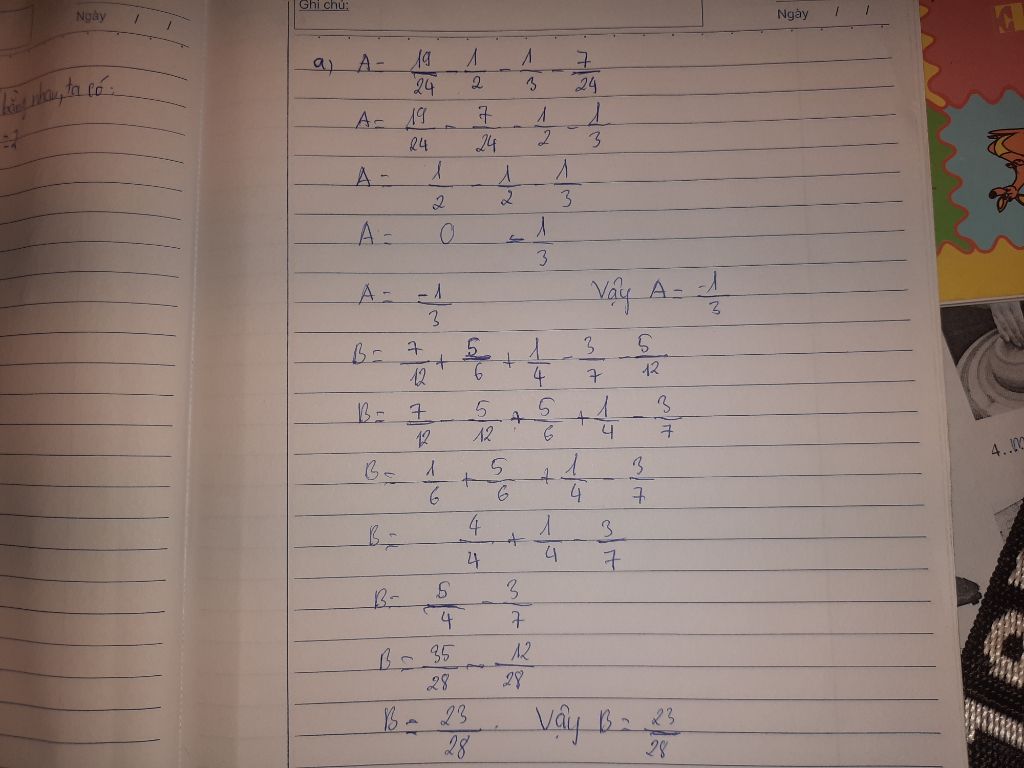 Ngày / /
Ghi chú:
Ngày / /
bằng nhau, ta có:
a) A = 19/24 - 1/2 - 1/3 - 7/24
A = 19/24 - 7/24 - 1/2 - 1/3
A = 1/2 - 1/2 - 1/3
A = 0 - 1/3
A = -1/3 Vậy A = -1/3
B = 7/12 + 5/6 + 1/4 - 3/7 - 5/12
B = 7/12 - 5/12 + 5/6 + 1/4 - 3/7
B = 1/6 + 5/6 + 1/4 - 3/7
B = 4/4 + 1/4 - 3/7
B = 5/4 - 3/7
B = 35/28 - 12/28
B = 23/28 . Vậy B = 23/28